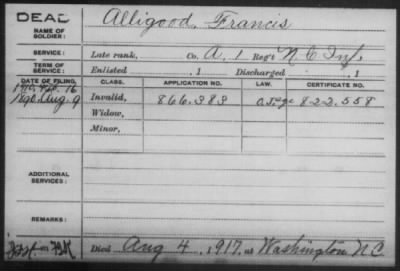 DEAD
NAME OF SOLDIER: Alligood, Francis
SERVICE: Late rank, Co. A, 1 Reg't N C Inf.
TERM OF SERVICE: Enlisted , 1 Discharged , 1
DATE OF FILING. CLASS. APPLICATION NO. LAW. CERTIFICATE NO.
16
Aug. 9 Invalid, 866.383 822.558
Widow,
Minor,
ADDITIONAL SERVICES:
REMARKS:
Died Aug 4, 1917, at Washington N C